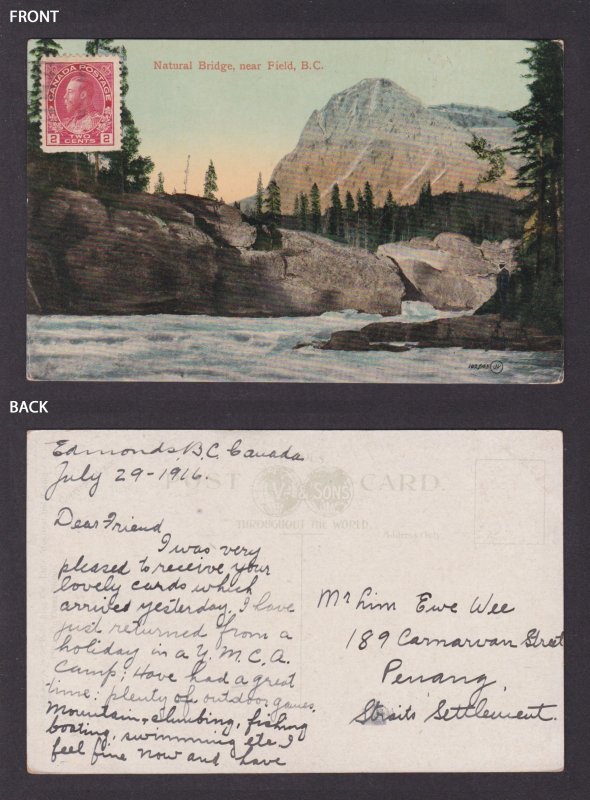 FRONT
CANADA POSTAGE
2 TWO CENTS 2
Natural Bridge, near Field, B.C.
BACK
Edmonds, B.C. Canada
July 29-1916.
POST CARD.
V. & SONS
THROUGHOUT THE WORLD.
Address Only
Dear Friend
I was very
pleased to receive your
lovely cards which
arrived yesterday. I have
just returned from a
holiday in a Y.M.C.A.
Camp; Have had a great
time: plenty of outdoor games,
Mountain-climbing, fishing
boating, swimming etc. I
feel fine now and have
Mr Lim Ewe Wee
189 Carnarvan Street
Penang,
Straits Settlement.